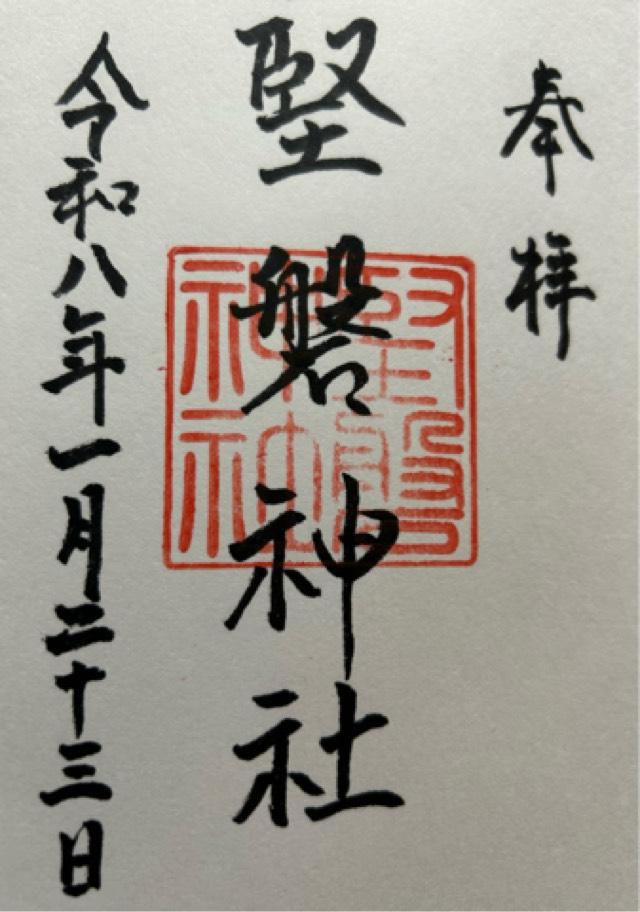 奉拝
堅磐神社
堅磐神社
令和八年一月二十三日